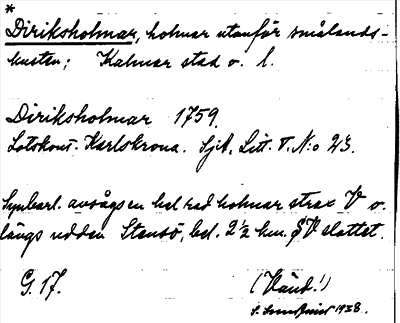 *
Diriksholmar, holmar utanför smålands-
kusten; Kalmar stad o. l.
Diriksholmar 1759.
Lotskont. Karlskrona. Sjk. Litt. T. N:o 23.
Synbarl. avsågs en hel rad holmar strax V o.
längs udden Stensö, bel. 2½ km. SV slottet.
G. 17.
(Vänd!)
1938.